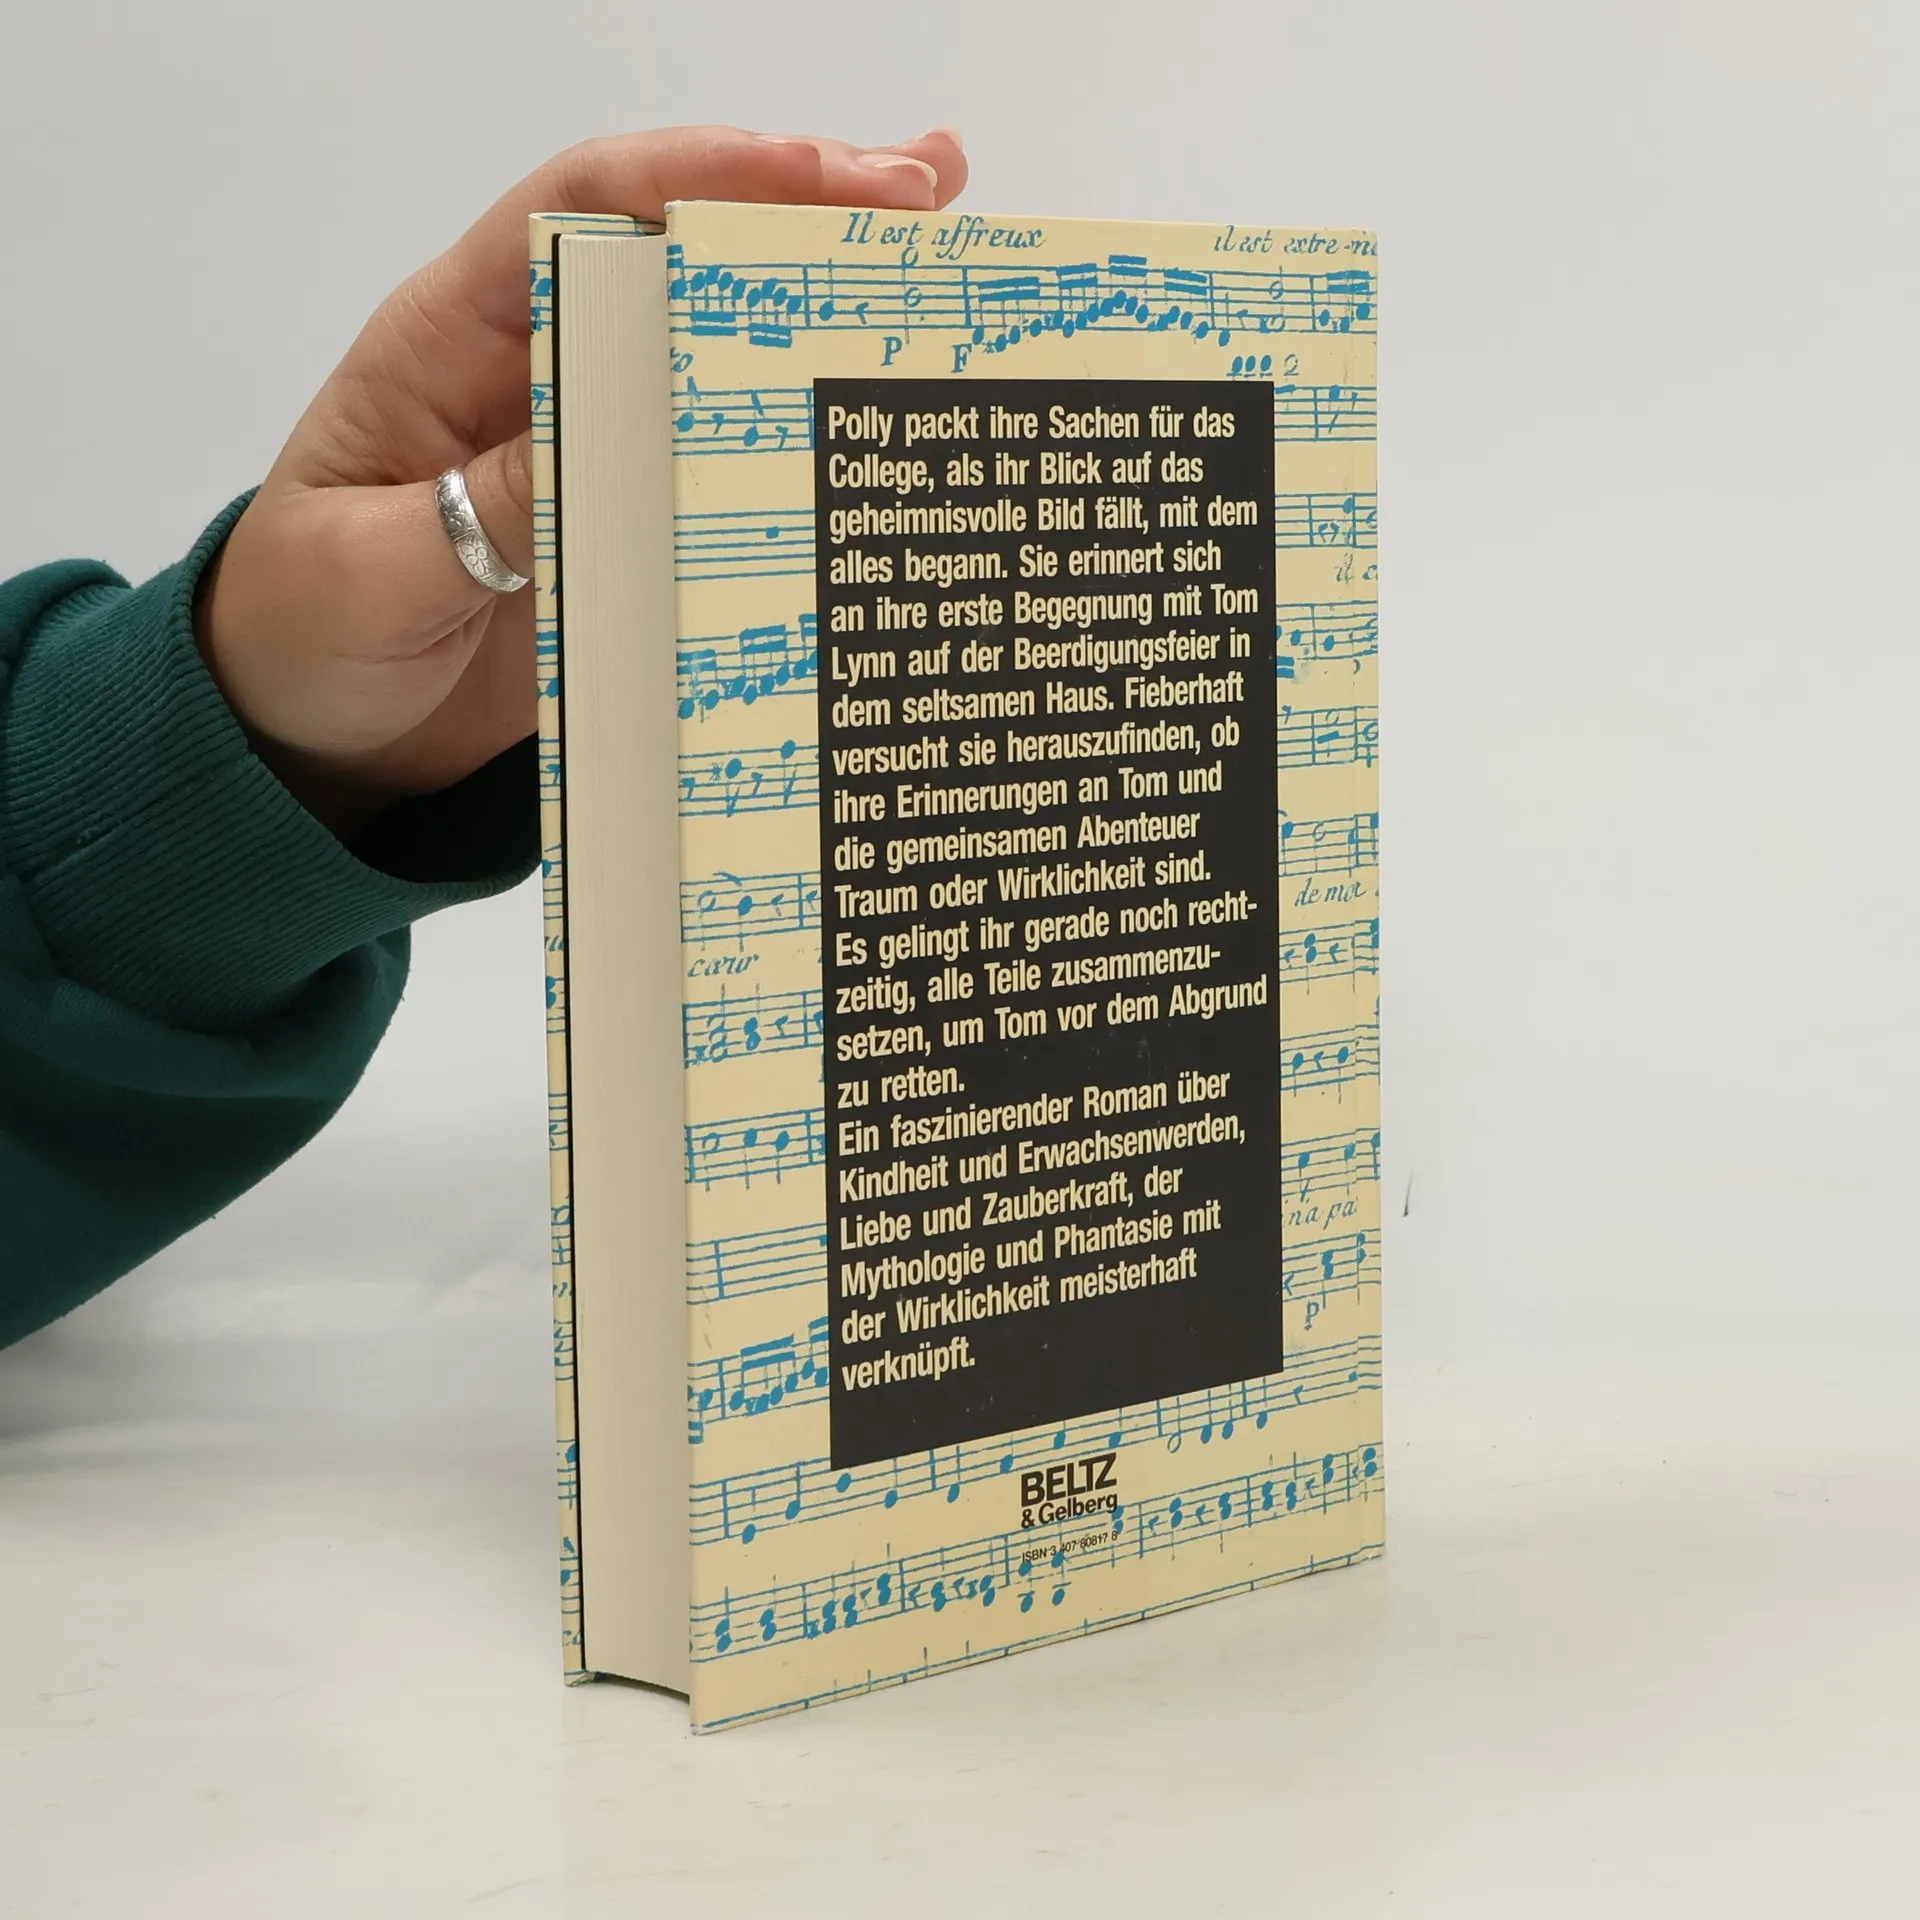 Il est affreux
il est extre-me
P
F
Polly packt ihre Sachen für das
College, als ihr Blick auf das
geheimnisvolle Bild fällt, mit dem
alles begann. Sie erinnert sich
an ihre erste Begegnung mit Tom
Lynn auf der Beerdigungsfeier in
dem seltsamen Haus. Fieberhaft
versucht sie herauszufinden, ob
ihre Erinnerungen an Tom und
die gemeinsamen Abenteuer
Traum oder Wirklichkeit sind.
Es gelingt ihr gerade noch recht-
zeitig, alle Teile zusammenzu-
setzen, um Tom vor dem Abgrund
zu retten.
Ein faszinierender Roman über
Kindheit und Erwachsenwerden,
Liebe und Zauberkraft, der
Mythologie und Phantasie mit
der Wirklichkeit meisterhaft
verknüpft.
de moi
P
BELTZ
& Gelberg
ISBN 3 407 80817 8